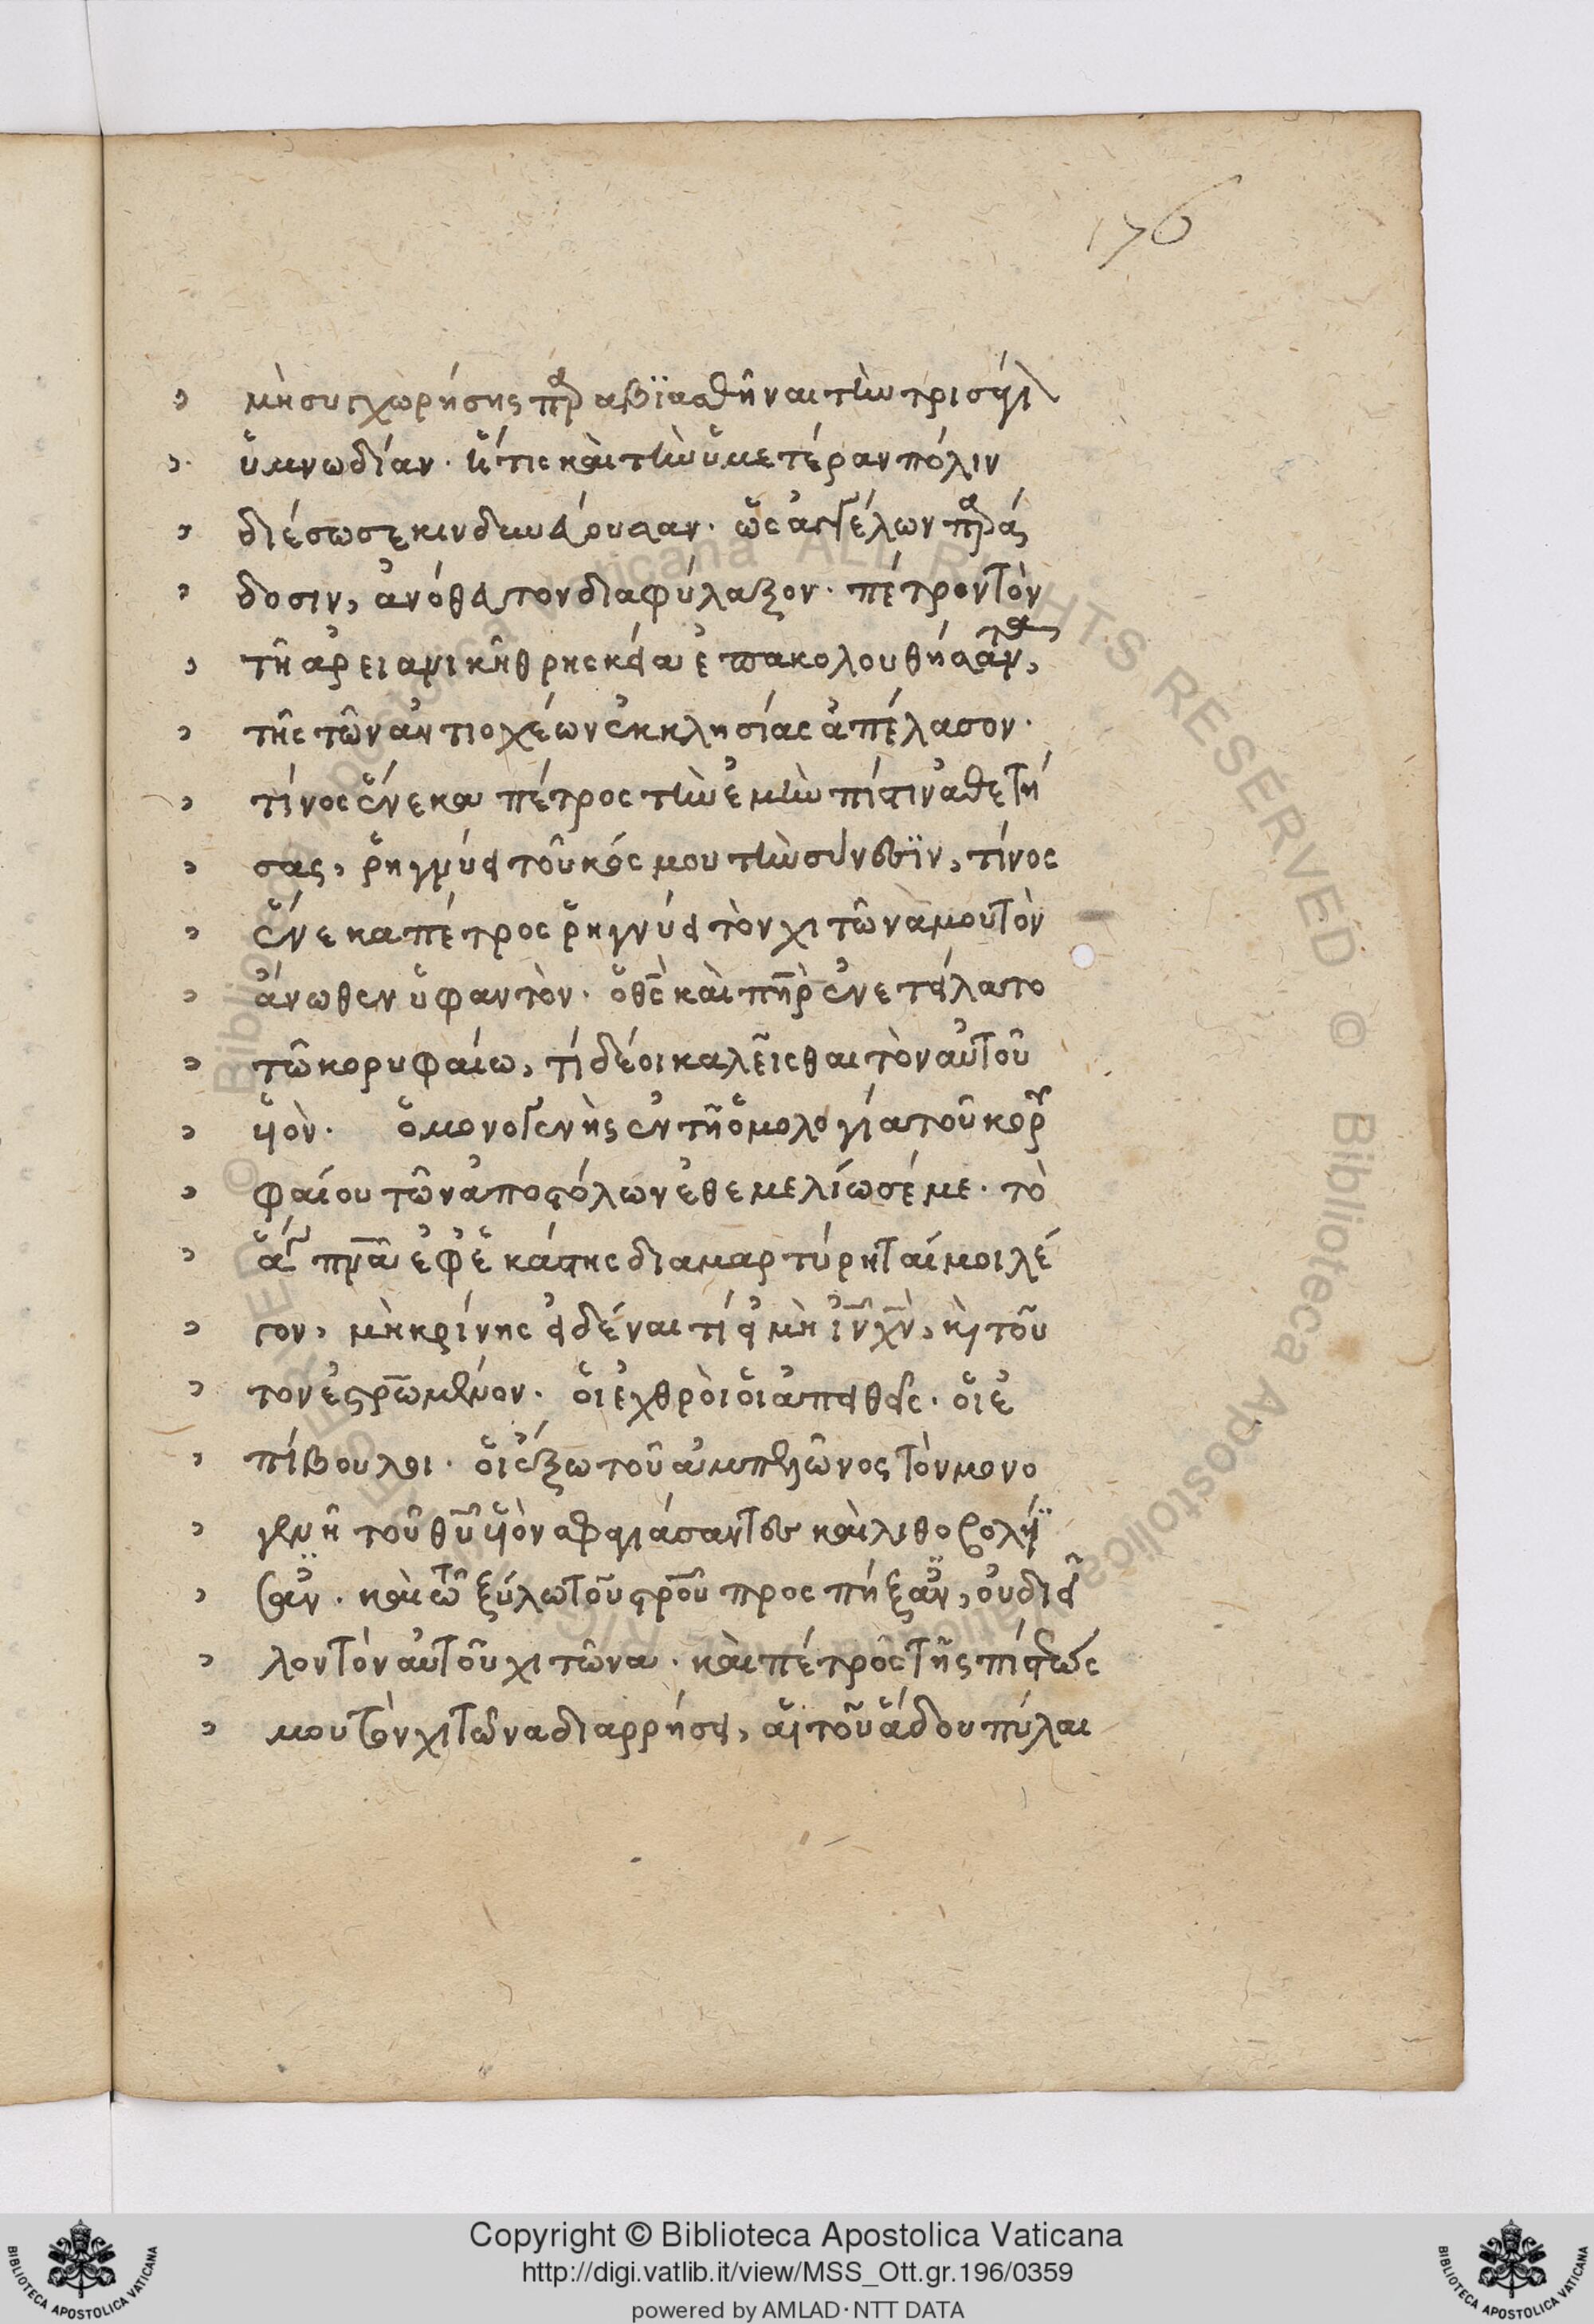 176
μὴ συγχωρήσης παραβϊασθῆναι τὴν τρισαγι
ὑμνωδίαν. ἥτις καὶ τὴν ὑμετέραν πόλιν
διέσωσε κινδυνεύουσαν. ὡς ἀγγέλων παρά
δοσιν, ἀνόθευτον διαφύλαξον. πέτρον τὸν
τῆ ἀρειανικῆ θρησκεία ἐπακολουθήσαντα,
τῆς τῶν ἀντιοχέων ἐκκλησίας ἀπέλασον.
τίνος ἕνεκα πέτρος τὴν ἐμὴν πίστιν ἀθετή
σας, ῥηγνύει τοῦ κόσμου τὴν σύνεσϊν, τίνος
ἕνεκα πέτρος ῥηγνύει τὸν χιτῶνα μου τὸν
ἄνωθεν ὑφαντὸν. ὅθεν καὶ πηρ ἐνετείλατο
τῶ κορυφαίω, τί δέοι καλεῖσθαι τὸν αὐτοῦ
υἱὸν. ὁ μονογενὴς ἐν τῆ ὁμολογία τοῦ κορυ
φαίου τῶν ἀποστόλων ἐθεμελίωσέ με. τὸ
ἅγιον πνα ἐφ' ἑκάστης διαμαρτύρεταί μοι λέ
γον, μὴ κρίνης εἰδέναι τί εἰ μὴ ιν χν, καὶ τοῦ
τον ἐσρωμένον. οἱ ἐχθροὶ οἱ ἀπειθεῖς. οἱ ἐ
πίβουλοι. οἱ ἔξω τοῦ ἀμπελῶνος τὸν μονο
γενῆ τοῦ θυ υἱὸν σφαγιάσαντες καὶ λιθοβολή
σαν. καὶ τῶ ξύλω τοῦ σρου προσπήξαν, οὐ διεῖ
λον τὸν αὐτοῦ χιτῶνα. καὶ πέτρος τῆς πίστεώς
μου τὸν χιτῶνα διαρρήσει, αἱ τοῦ ἅδου πύλαι
© Biblioteca Apostolica Vaticana ALL RIGHTS RESERVED
Copyright © Biblioteca Apostolica Vaticana
http://digi.vatlib.it/view/MSS_Ott.gr.196/0359
powered by AMLAD·NTT DATA
BIBLIOTECA APOSTOLICA VATICANA
BIBLIOTECA APOSTOLICA VATICANA